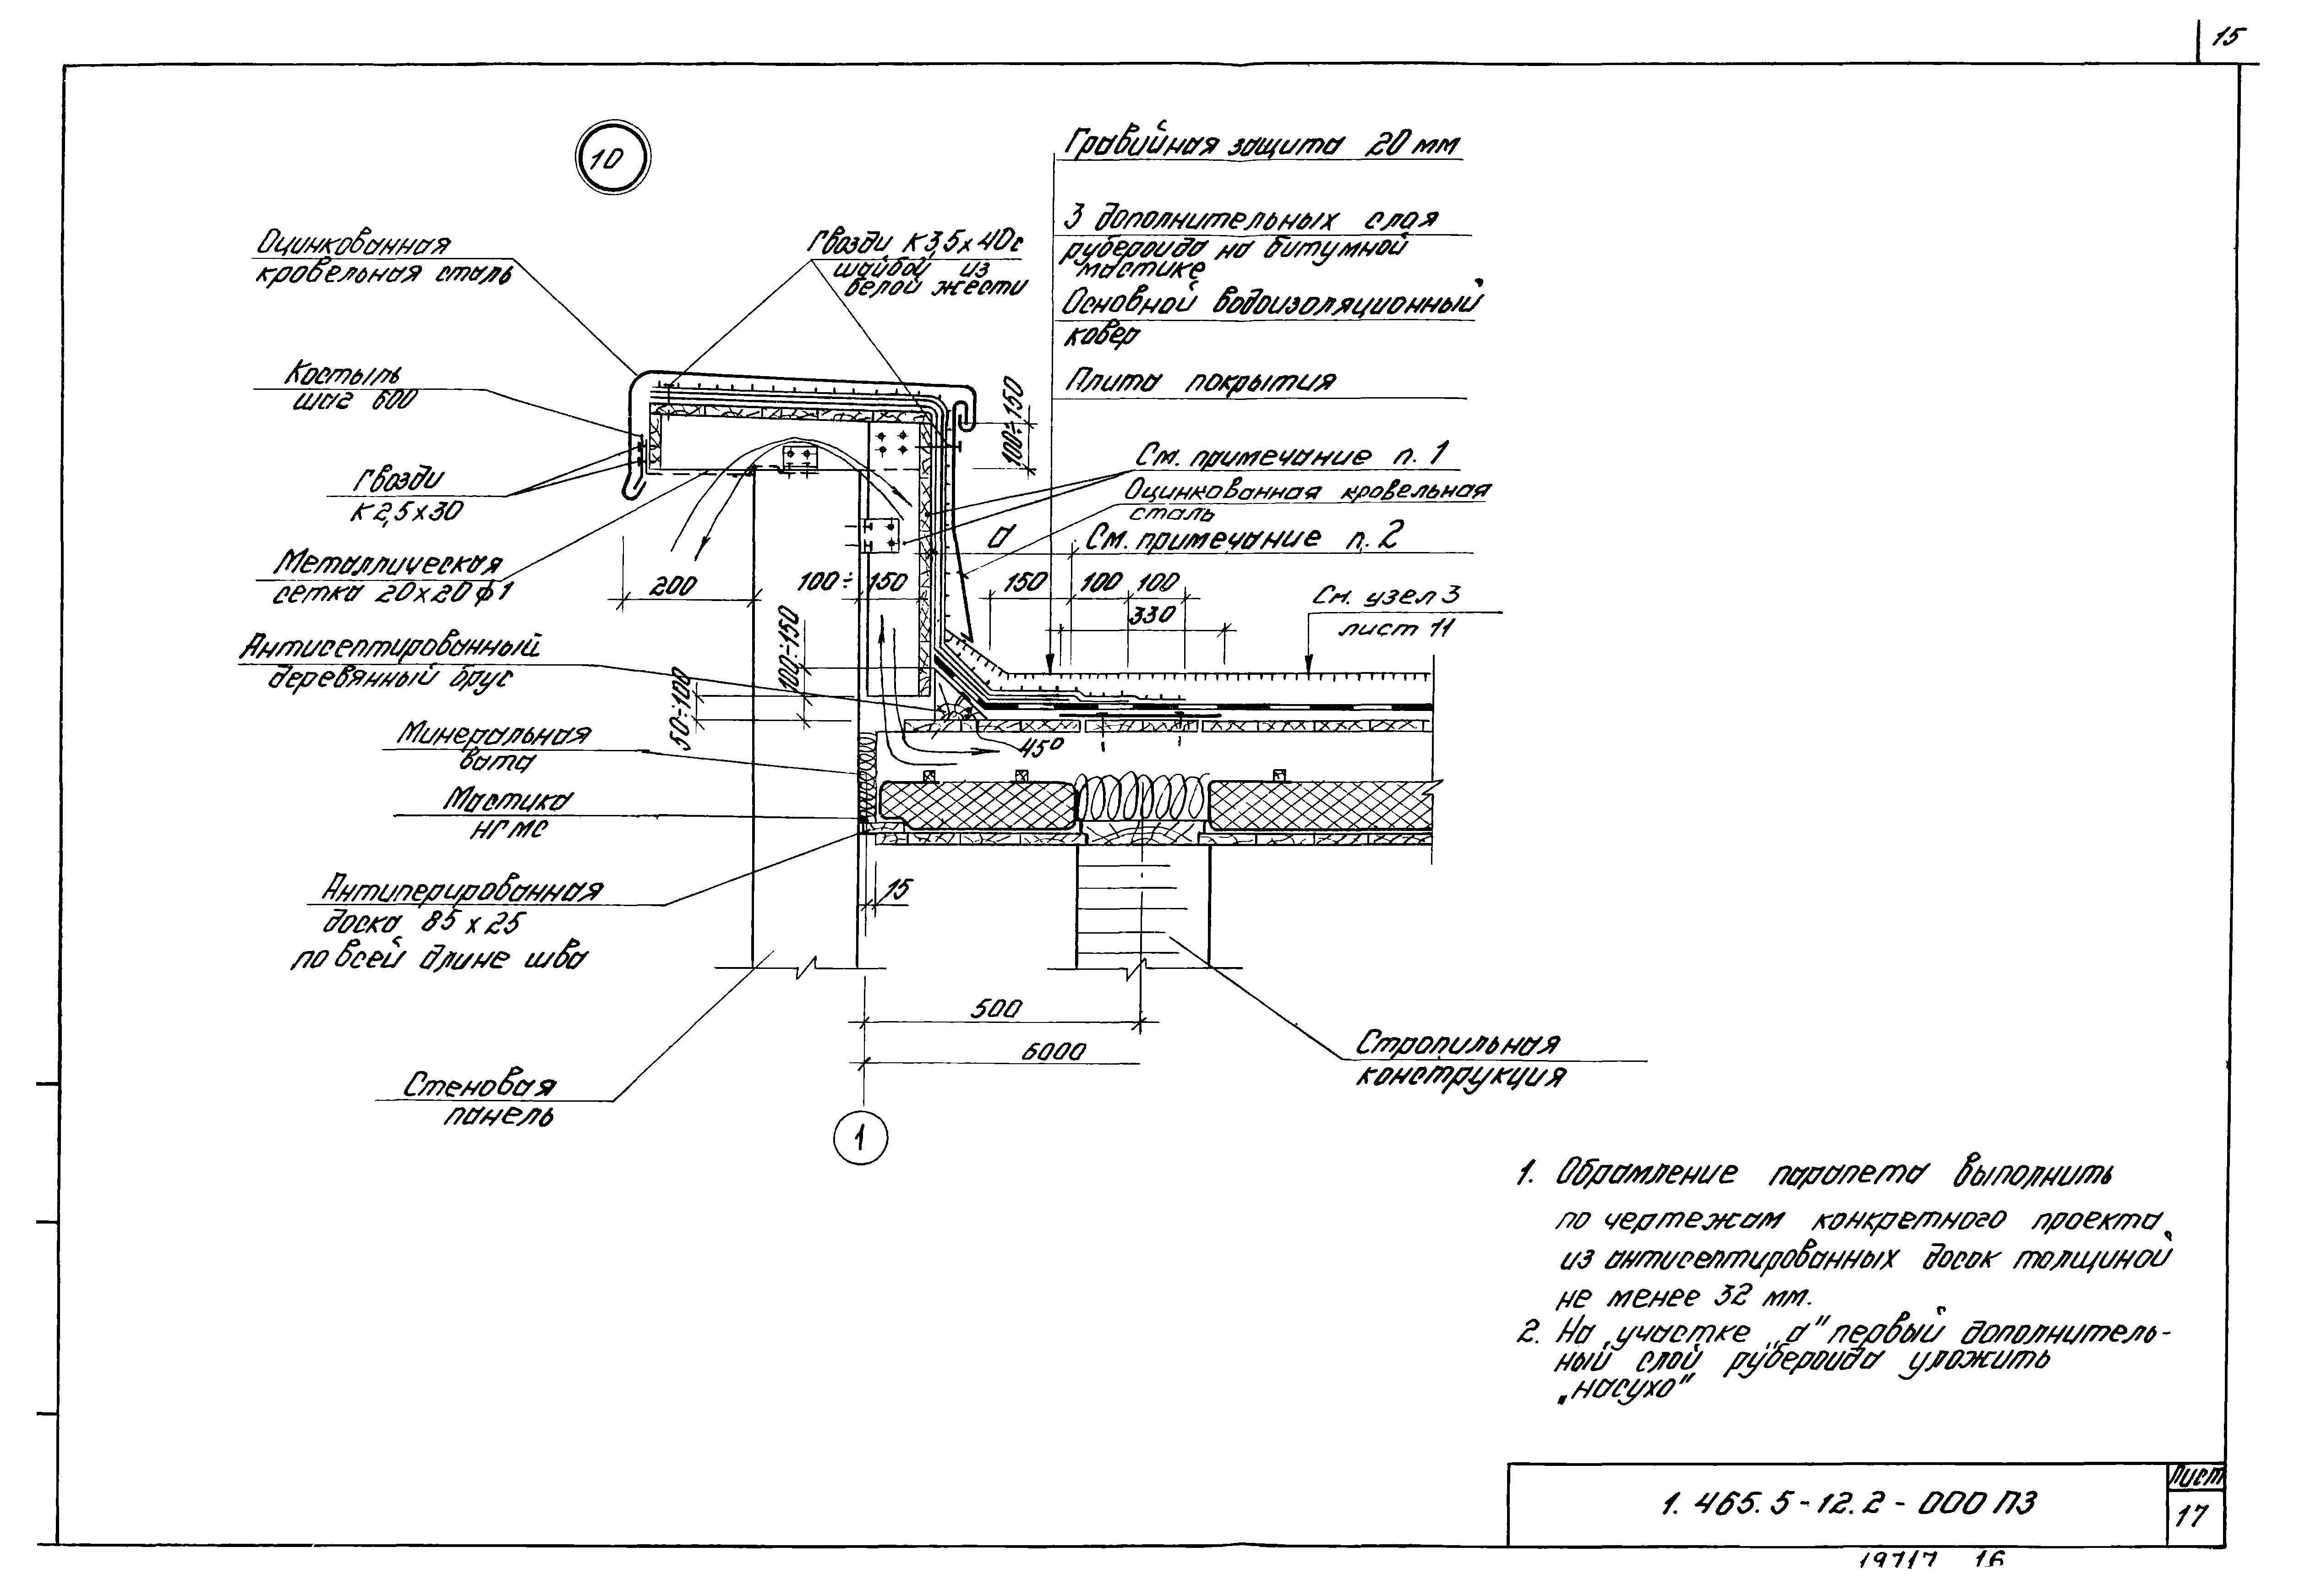 15
10
Гравийная защита 20 мм
3 дополнительных слоя
рубероида на битумной
мастике
Основной водоизоляционный
ковер
Плита покрытия
Оцинкованная
кровельная сталь
Гвозди К3,5х40с
шайбой из
белой жести
Костыль
шаг 600
Гвозди
К2,5х30
Металлическая
сетка 20х20ф1
Антисептированный
деревянный брус
Минеральная
вата
Мастика
НГМС
Антиперированная
доска 85х25
по всей длине шва
Стеновая
панель
100÷150
См. примечание п. 1
Оцинкованная кровельная
сталь
а
См. примечание п. 2
200
100÷150
150
100
100
330
См. узел 3
лист 11
100÷150
50÷100
45°
15
500
6000
1
Стропильная
конструкция
1. Обрамление парапета выполнить
по чертежам конкретного проекта
из антисептированных досок толщиной
не менее 32 мм.
2. На участке „а" первый дополнитель-
ный слой рубероида уложить
„насухо"
1.465.5-12.2-000 ПЗ
Лист
17
19717 16